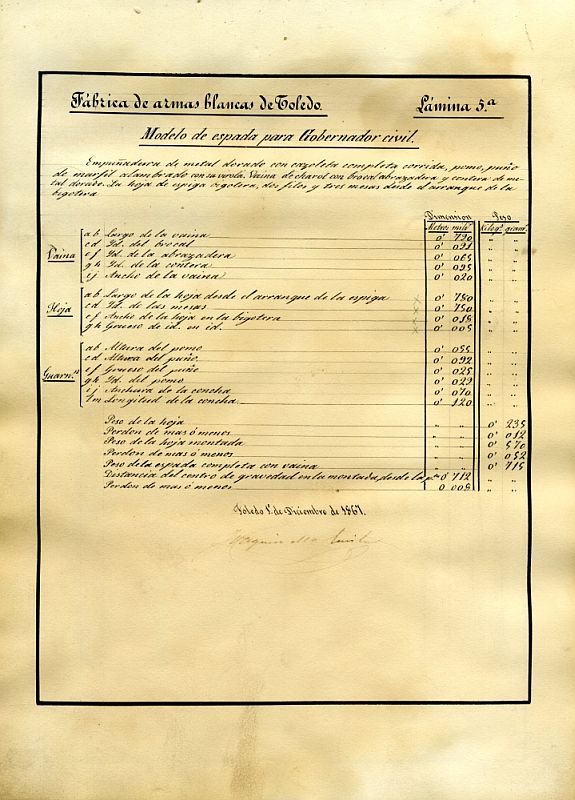 Fábrica de armas blancas de Toledo. Lámina 5.ª
Modelo de espada para Gobernador civil.
Empuñadura de metal dorado con cazoleta completa corrida, pomo, puño
de marfil alambrado con su virola. Vaina de charol con brocal abrazadera y contera de me-
tal dorado. La hoja de espiga vigotera, dos filos y tres mesas desde el arranque de la
bigotera
Dimension Peso
Metros milˢ Kilogˢ gramˢ
Vaina
ab Largo de la vaina 0' 790 " "
cd Id. del brocal 0' 091 " "
ef Id. de la abrazadera 0' 065 " "
gh Id. de la contera 0' 095 " "
ij Ancho de la vaina 0' 020 " "
Hoja
ab Largo de la hoja desde el arranque de la espiga 0' 780 " "
cd Id. de las mesas 0' 750 " "
ef Ancho de la hoja en la bigotera 0' 018 " "
gh Grueso de id. en id. 0' 005 " "
Guarnⁿ
ab Altura del pomo 0' 055 " "
cd Altura del puño 0' 092 " "
ef Grueso del puño 0' 025 " "
gh Id. del pomo 0' 029 " "
ij Anchura de la concha 0' 070 " "
lm Longitud de la concha 0' 120 " "
Peso de la hoja " " 0' 235
Perdon de mas ó menos " " 0' 012
Peso de la hoja montada " " 0' 570
Perdon de mas ó menos " " 0' 052
Peso de la espada completa con vaina " " 0' 715
Distancia del centro de gravedad en la montada, desde la pᵗᵃ 0' 712 " "
Perdon de mas ó menos 0 005 " "
Toledo 1º de Diciembre de 1861.